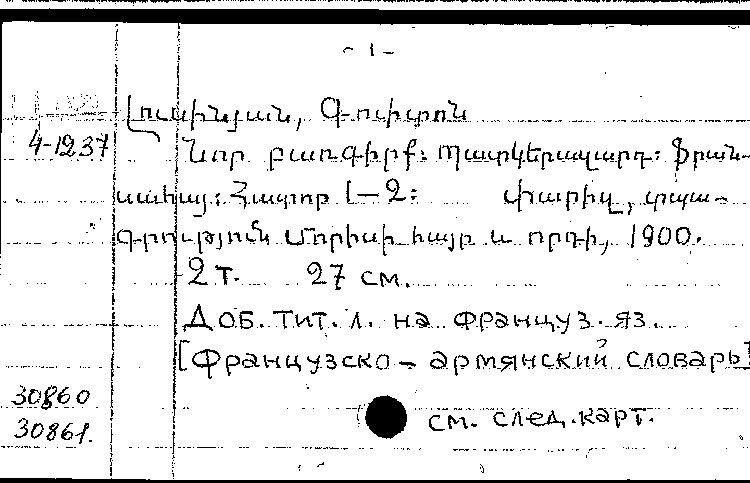 - 1 -
Լուսինյան, Գուիտոն
4-1237
Նոր բառգիրք: Պատկերազարդ: Ֆրան-
սահայ: Հատոր 1-2: Փարիզ, տպա-
գրություն Մորիսի հայր և որդի, 1900.
2 т. 27 см.
Доб. тит. л. на француз. яз.
[Французско - армянский словарь]
30860
30861.
см. след. карт.